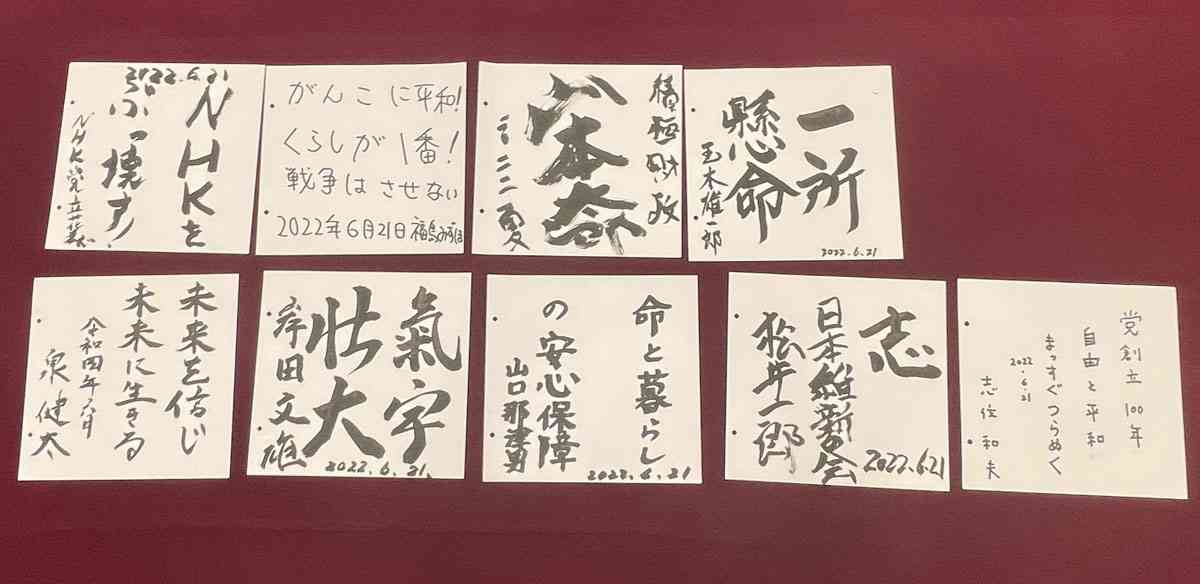 2022.6.21
NHKを
ぶっ壊す!
NHK党 立花
がんこに平和!
くらしが1番!
戦争は させない
2022年6月21日 福島みずほ
積極財政
山本太郎
二〇二二 夏
一所
懸命
玉木雄一郎
2022.6.21
未来を信じ
未来に生きる
令和四年六月
泉 健太
氣宇
壮大
岸田文雄
2022.6.21.
命と暮らし
の安心保障
山口那津男
2022.6.21
志
日本維新の会
松井一郎
2022.6.21
党創立 100年
自由と平和
まっすぐつらぬく
2022.6.21
志位和夫